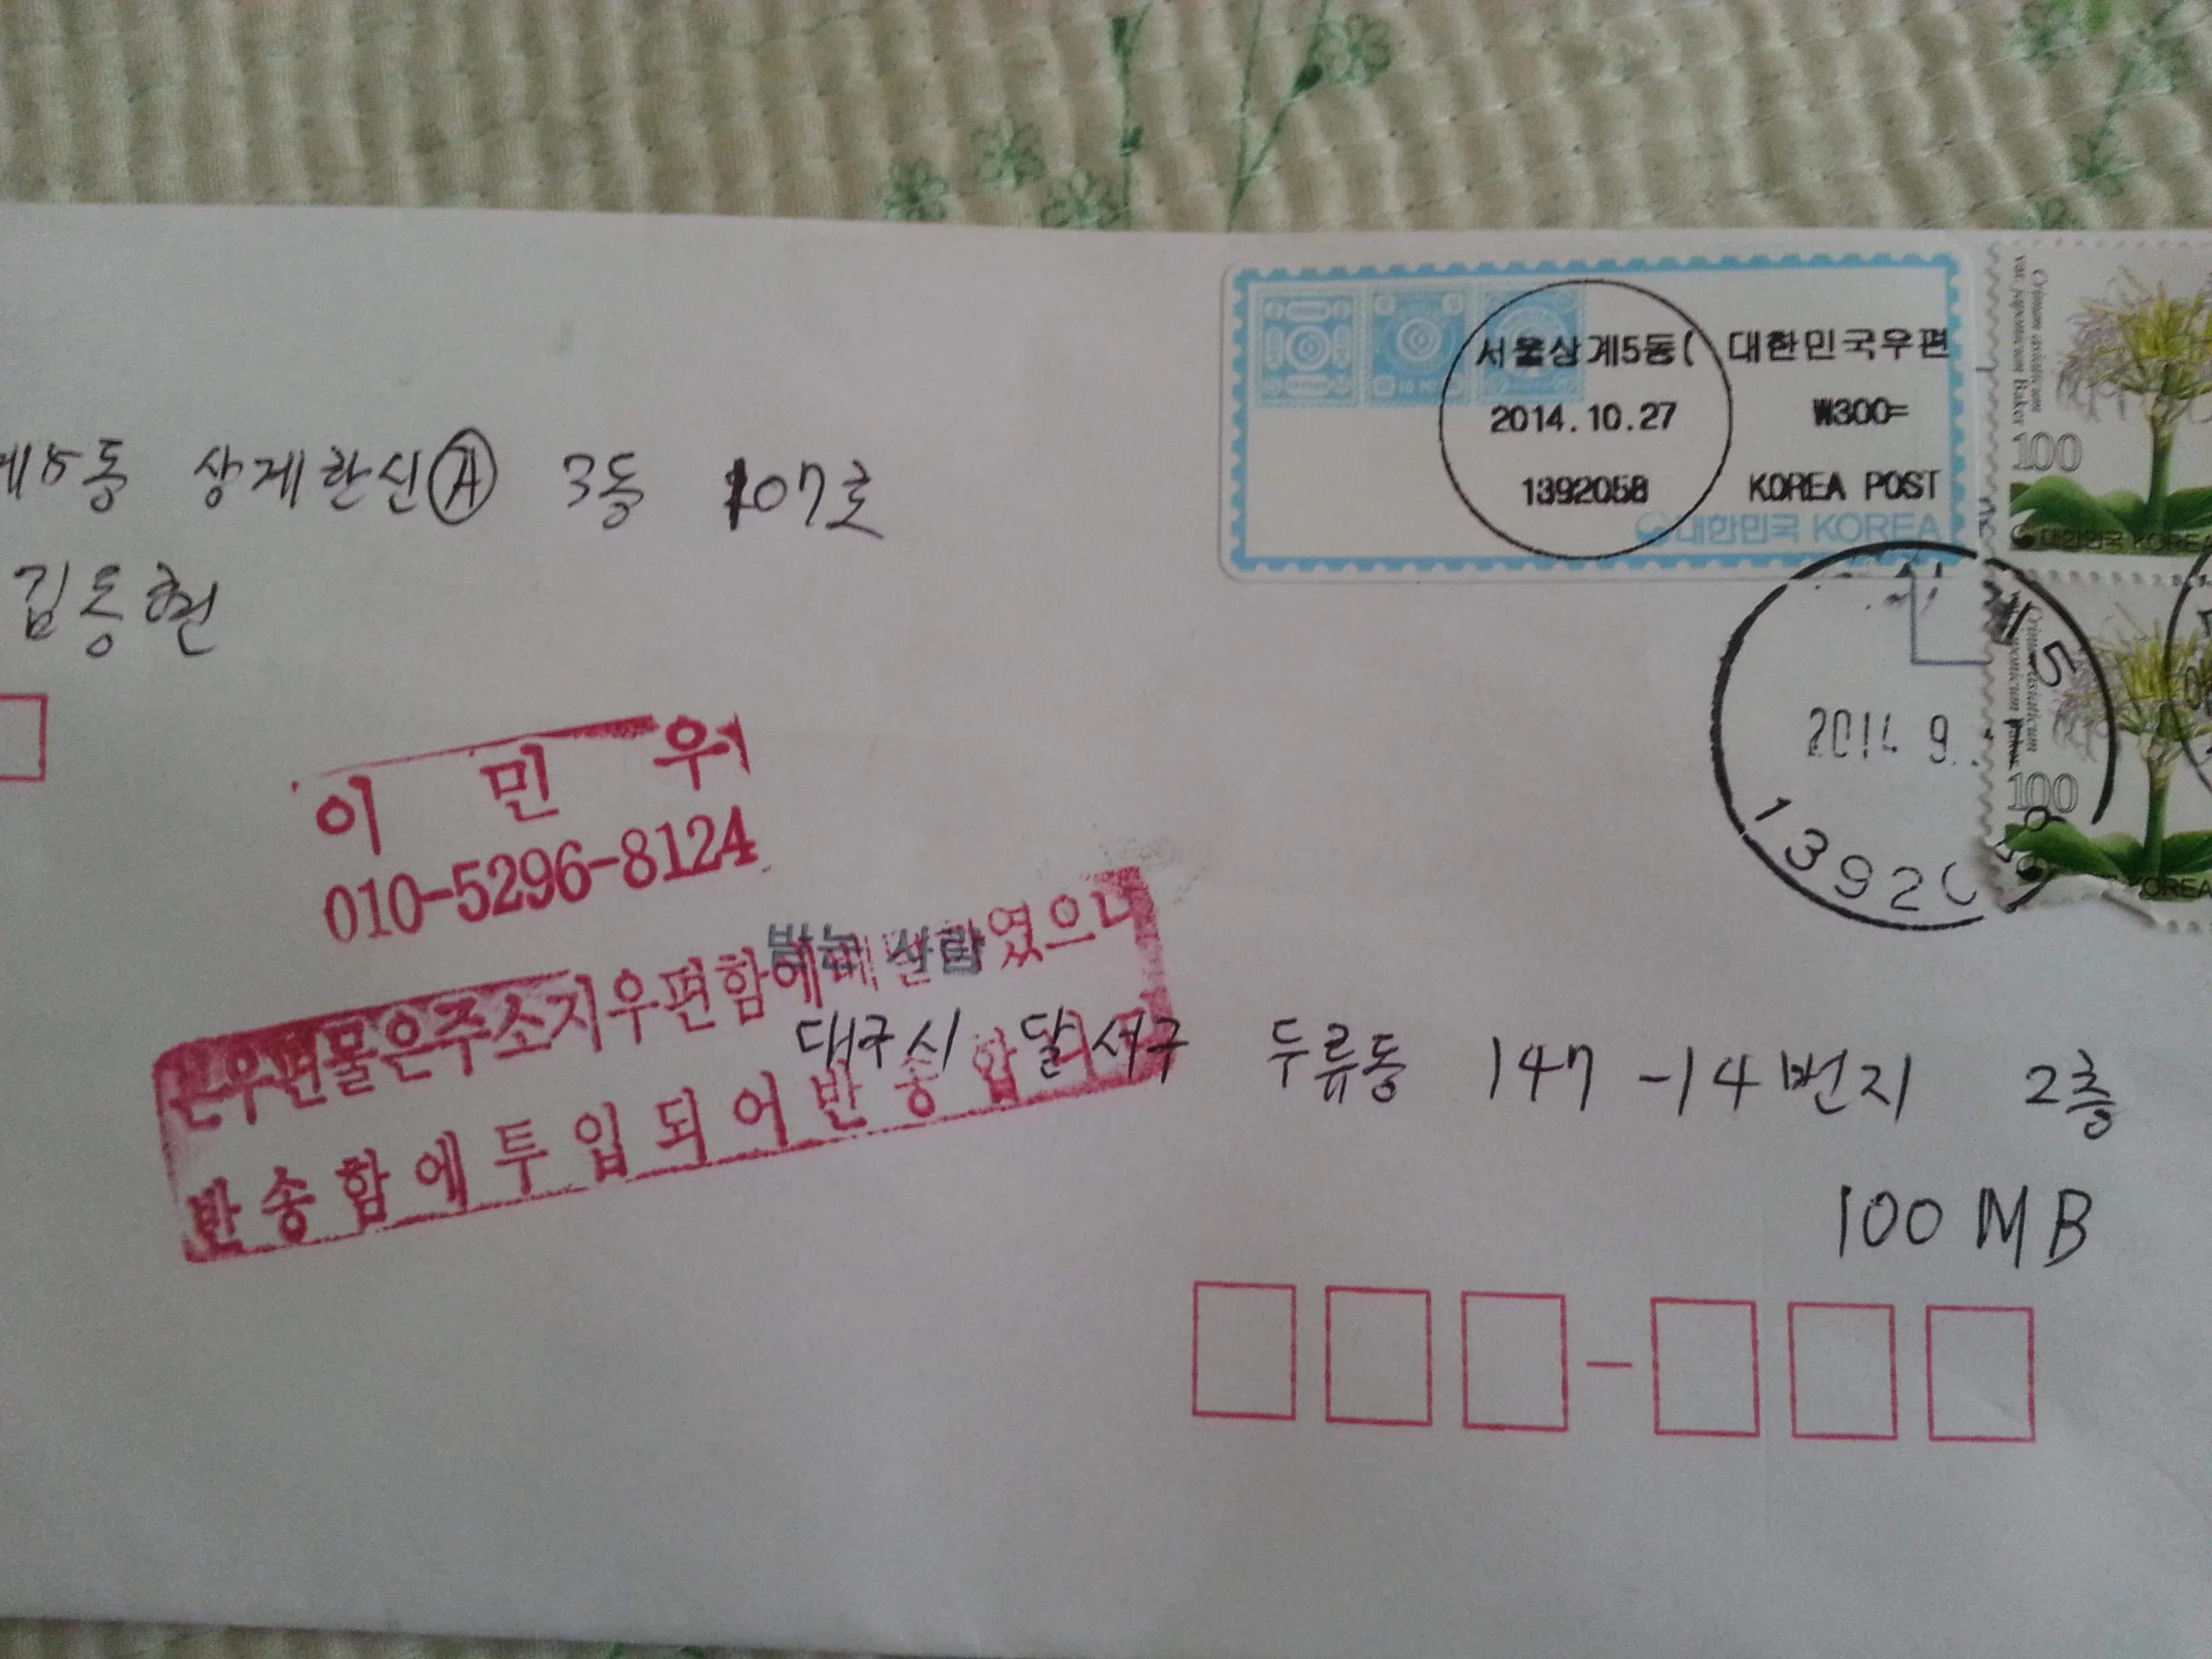 서울상계5동( 대한민국우편
2014.10.27 ₩300=
1392058 KOREA POST
대한민국 KOREA
Crinum asiaticum
var. japonicum Baker
100
대한민국 KOREA
계5동 상계한신Ⓐ 3동 107호
김동현
이 민 우
010-5296-8124
받는 사람
본우편물은주소지우편함에 였으나
반송함에투입되어반송합니다
대구시 달서구 두류동 147-14번지 2층
100MB
5
2014 9.
13920
Crinum asiaticum
100
KOREA